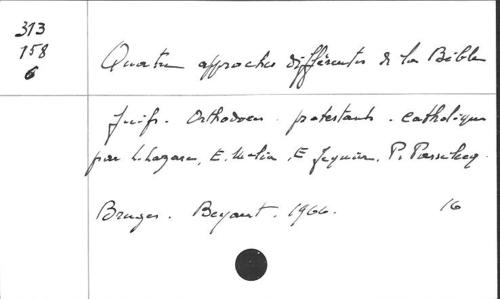 313
158
6
Quatre approches différentes de la Bible
Juifs - Orthodoxes - protestants - catholiques
par L. Lazare, E. Melia, E Jequier, P. Passelecq
Bruges. Beyaert. 1966. 16